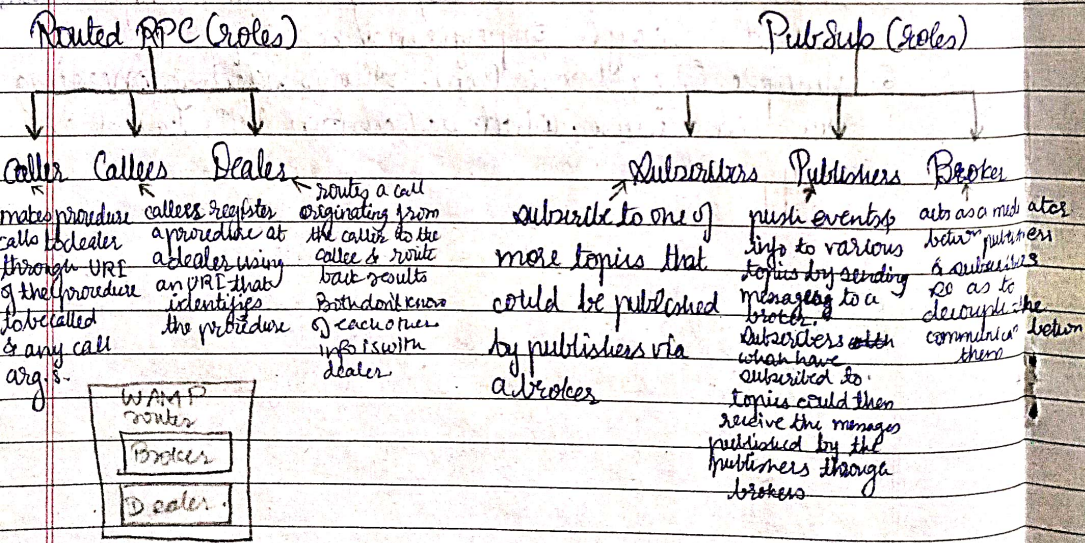 Routed RPC (roles)
Caller
makes produdure
calls to dealer
through URI
of the procedure
to be called
& any call
args.
Callees
callers register
a procedure at
a dealer using
an URI that
identifies
the procedure
Dealer
routes a call
originating from
the caller to the
callee & route
back results
Both don't know
of each other
info is with
dealer
WAMP
router
Broker
Dealer
PubSub (roles)
Subscribers
subscribe to one of
more topics that
could be published
by publishers via
a broker
Publishers
push events &
info to various
topics by sending
messages to a
broker.
Subscribers
which have
subscribed to
topics could then
receive the messages
published by the
publishers through
brokers
Broker
acts as a mediator
betwn publishers
& subscribers
so as to
decouple the
communican betwn
them